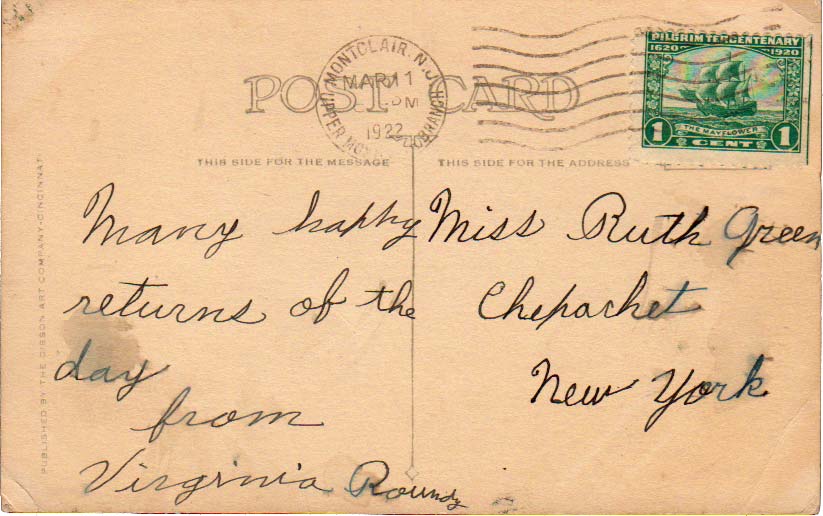 POST CARD
UPPER MONTCLAIR, N.J. BRANCH
MAR 11
PM
1922
PILGRIM TERCENTENARY
1620 1920
THE MAYFLOWER
1 CENT 1
THIS SIDE FOR THE MESSAGE
THIS SIDE FOR THE ADDRESS
Many happy
returns of the
day
from
Virginia Roundy
Miss Ruth Green
Chepachet
New York
PUBLISHED BY THE GIBSON ART COMPANY-CINCINNATI